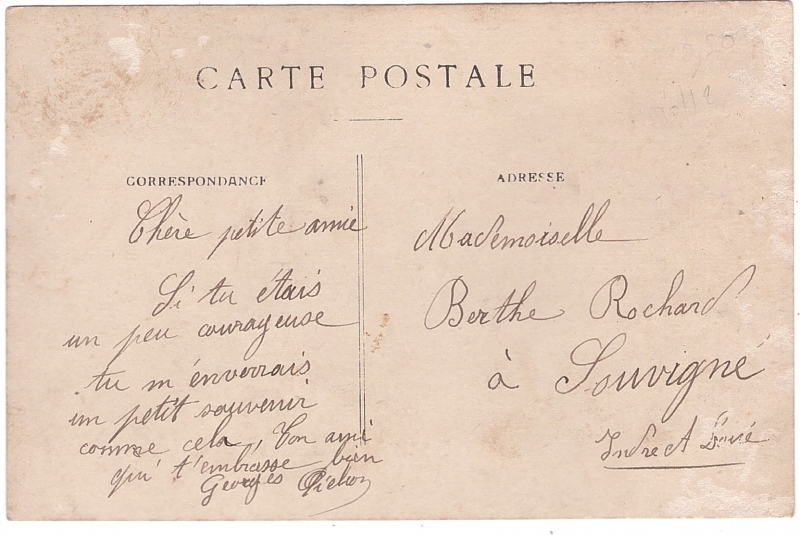 CARTE POSTALE
CORRESPONDANCE
Chère petite amie
Si tu étais
un peu courageuse
tu m'énverrais
un petit souvenir
comme cela, Ton ami
qui t'embrasse bien
Georges
ADRESSE
Mademoiselle
Berthe Rochard
à Souvigné
Indre et